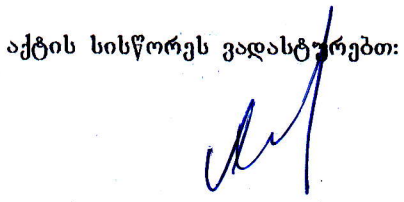 აქტის სისწორეს ვადასტურებთ: